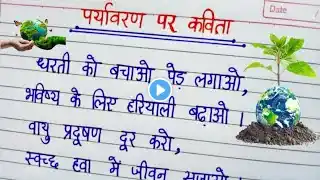 पर्यावरण पर कविता
Date
धरती को बचाओ पेड़ लगाओ,
भविष्य के लिए हरियाली बढ़ाओ।
वायु प्रदूषण दूर करो,
स्वच्छ हवा में जीवन